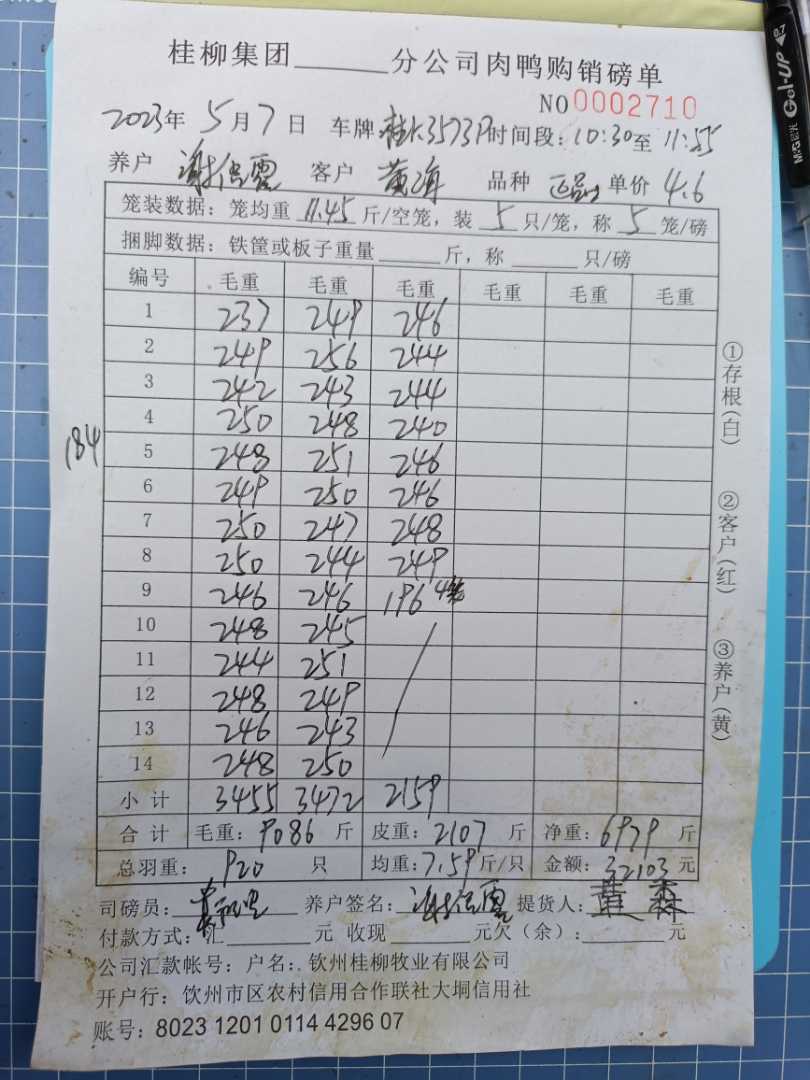 桂柳集团______分公司肉鸭购销磅单
NO 0002710
2023年 5月7日 车牌 桂K3573P 时间段：10:30至 11:55
养户 谢 客户 黄 品种 正品 单价 4.6
笼装数据：笼均重 11.45 斤/空笼，装 5 只/笼，称 5 笼/磅
捆脚数据：铁筐或板子重量____斤，称____只/磅
编号 毛重 毛重 毛重 毛重 毛重 毛重
1 237 249 246
2 249 256 244
3 242 243 244
4 250 248 240
184
5 248 251 246
6 249 250 246
7 250 247 248
8 250 244 249
9 246 246 196 4笼
10 248 245
11 244 251
12 248 249
13 246 243
14 248 250
小计 3455 3472 2159
合计 毛重：9086 斤 皮重：2107 斤 净重：6979 斤
总羽重： 920 只 均重：7.59 斤/只 金额：32103 元
司磅员： 养户签名：谢 提货人：黄森
付款方式：汇______元 收现______元欠（余）：______元
公司汇款帐号：户名：钦州桂柳牧业有限公司
开户行：钦州市区农村信用合作联社大垌信用社
账号：8023 1201 0114 4296 07
①存根（白） ②客户（红） ③养户（黄）
M&G 晨光 Gel-UP 0.7